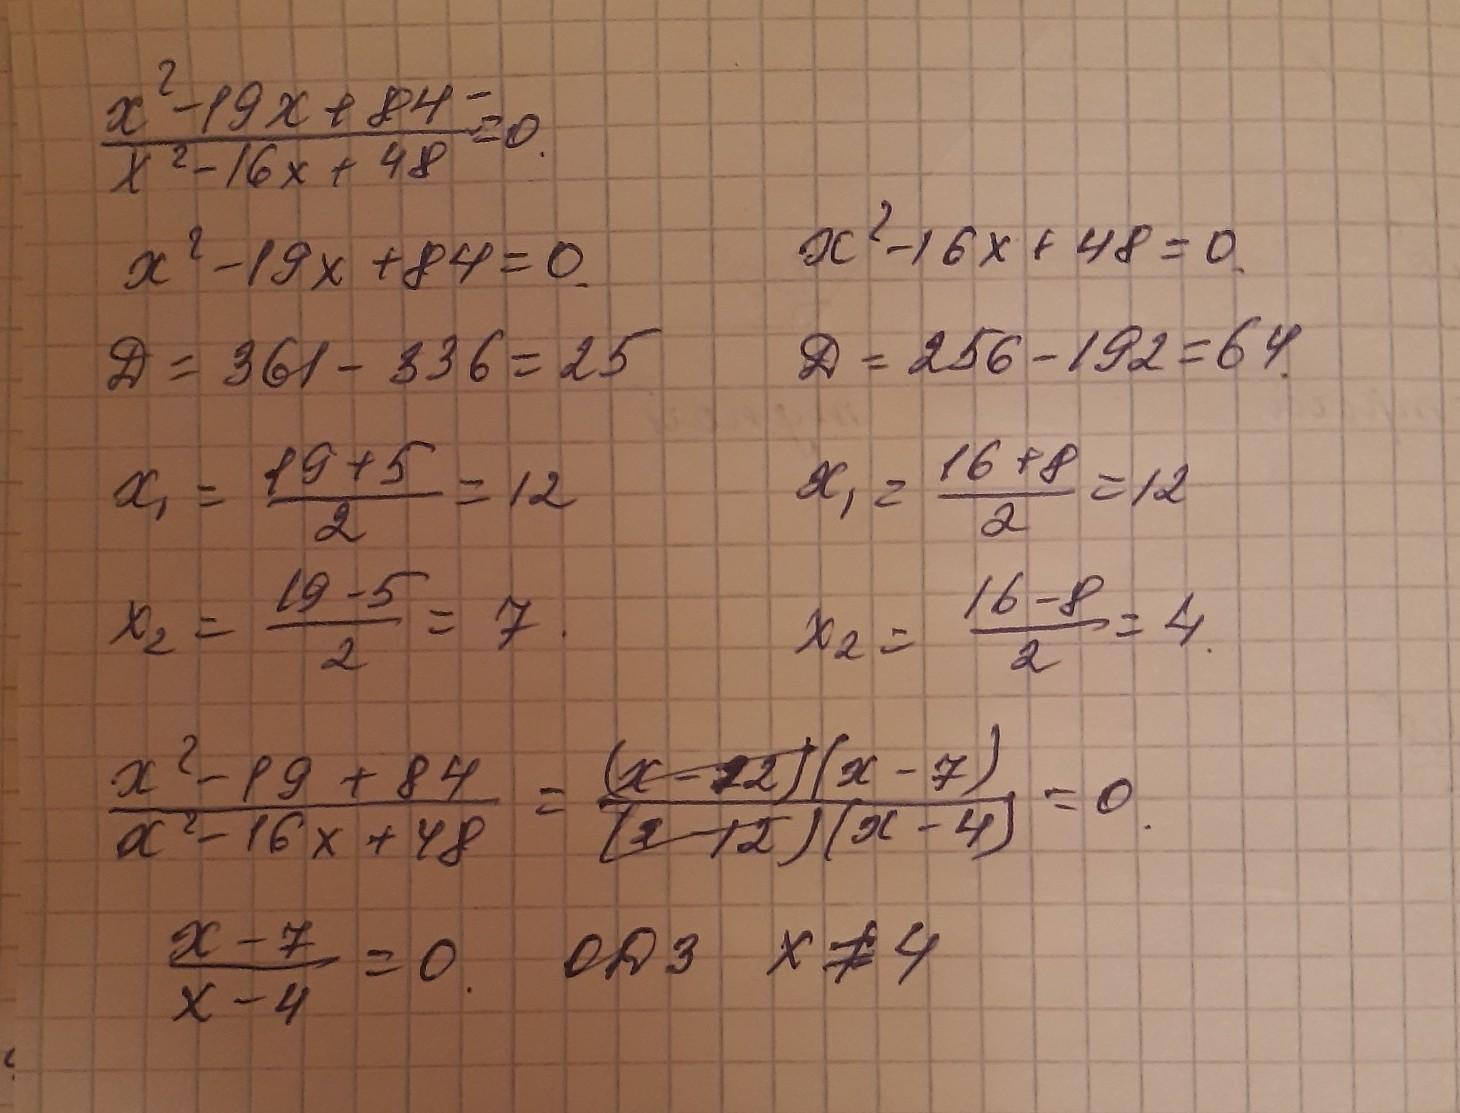 x²-19x+84 / x²-16x+48 =0.
x²-19x+84=0.
Д=361-336=25
x₁=(19+5)/2=12
x₂=(19-5)/2=7.
x²-16x+48=0.
Д=256-192=64.
x₁=(16+8)/2=12
x₂=(16-8)/2=4.
x²-19+84 / x²-16x+48 = (x-12)(x-7) / (x-12)(x-4) =0.
x-7 / x-4 =0. ОДЗ x≠4